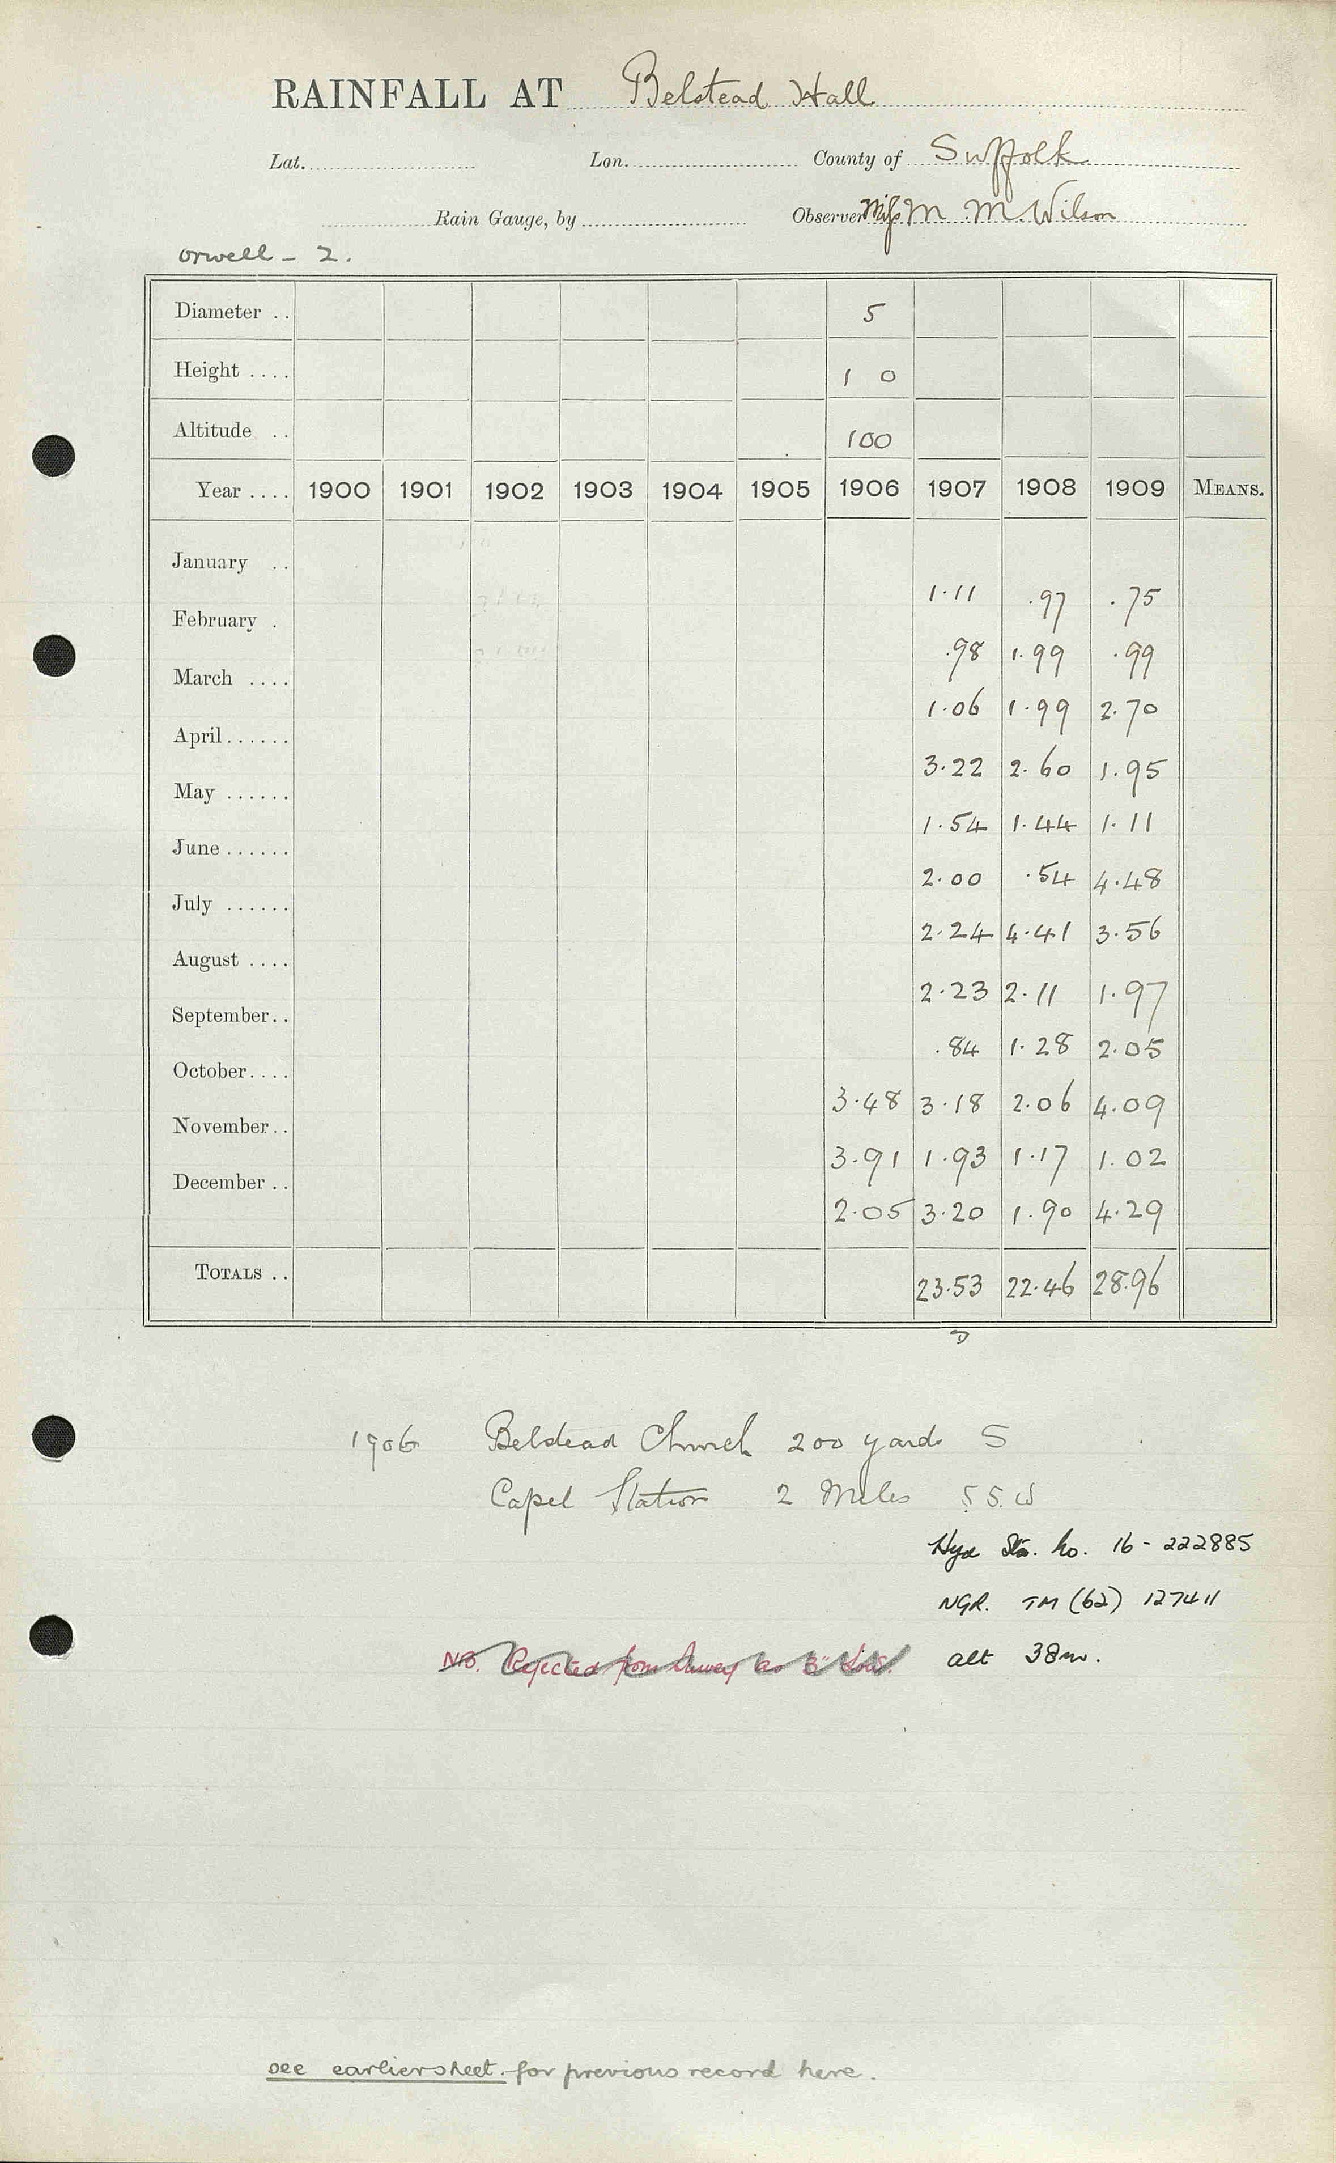 RAINFALL AT Belstead Hall
Lat. Lon. County of Suffolk
Rain Gauge, by Observer Miss M M. Wilson
Orwell - 2.
Diameter .. 5
Height .... 1 0
Altitude .. 100
Year .... 1900 1901 1902 1903 1904 1905 1906 1907 1908 1909 MEANS.
January .. 1.11 .97 .75
February . .98 1.99 .99
March .... 1.06 1.99 2.70
April...... 3.22 2.60 1.95
May ...... 1.54 1.44 1.11
June ...... 2.00 .54 4.48
July ...... 2.24 4.41 3.56
August .... 2.23 2.11 1.97
September.. .84 1.28 2.05
October.... 3.48 3.18 2.06 4.09
November.. 3.91 1.93 1.17 1.02
December .. 2.05 3.20 1.90 4.29
TOTALS .. 23.53 22.46 28.96
1906 Belstead Church 200 yards S
Capel Station 2 Miles S S. W
Hyd Sta. No. 16 - 222885
NGR. TM (62) 127411
NB. Rejected from as alt 38m.
see earlier sheet. for previous record here.